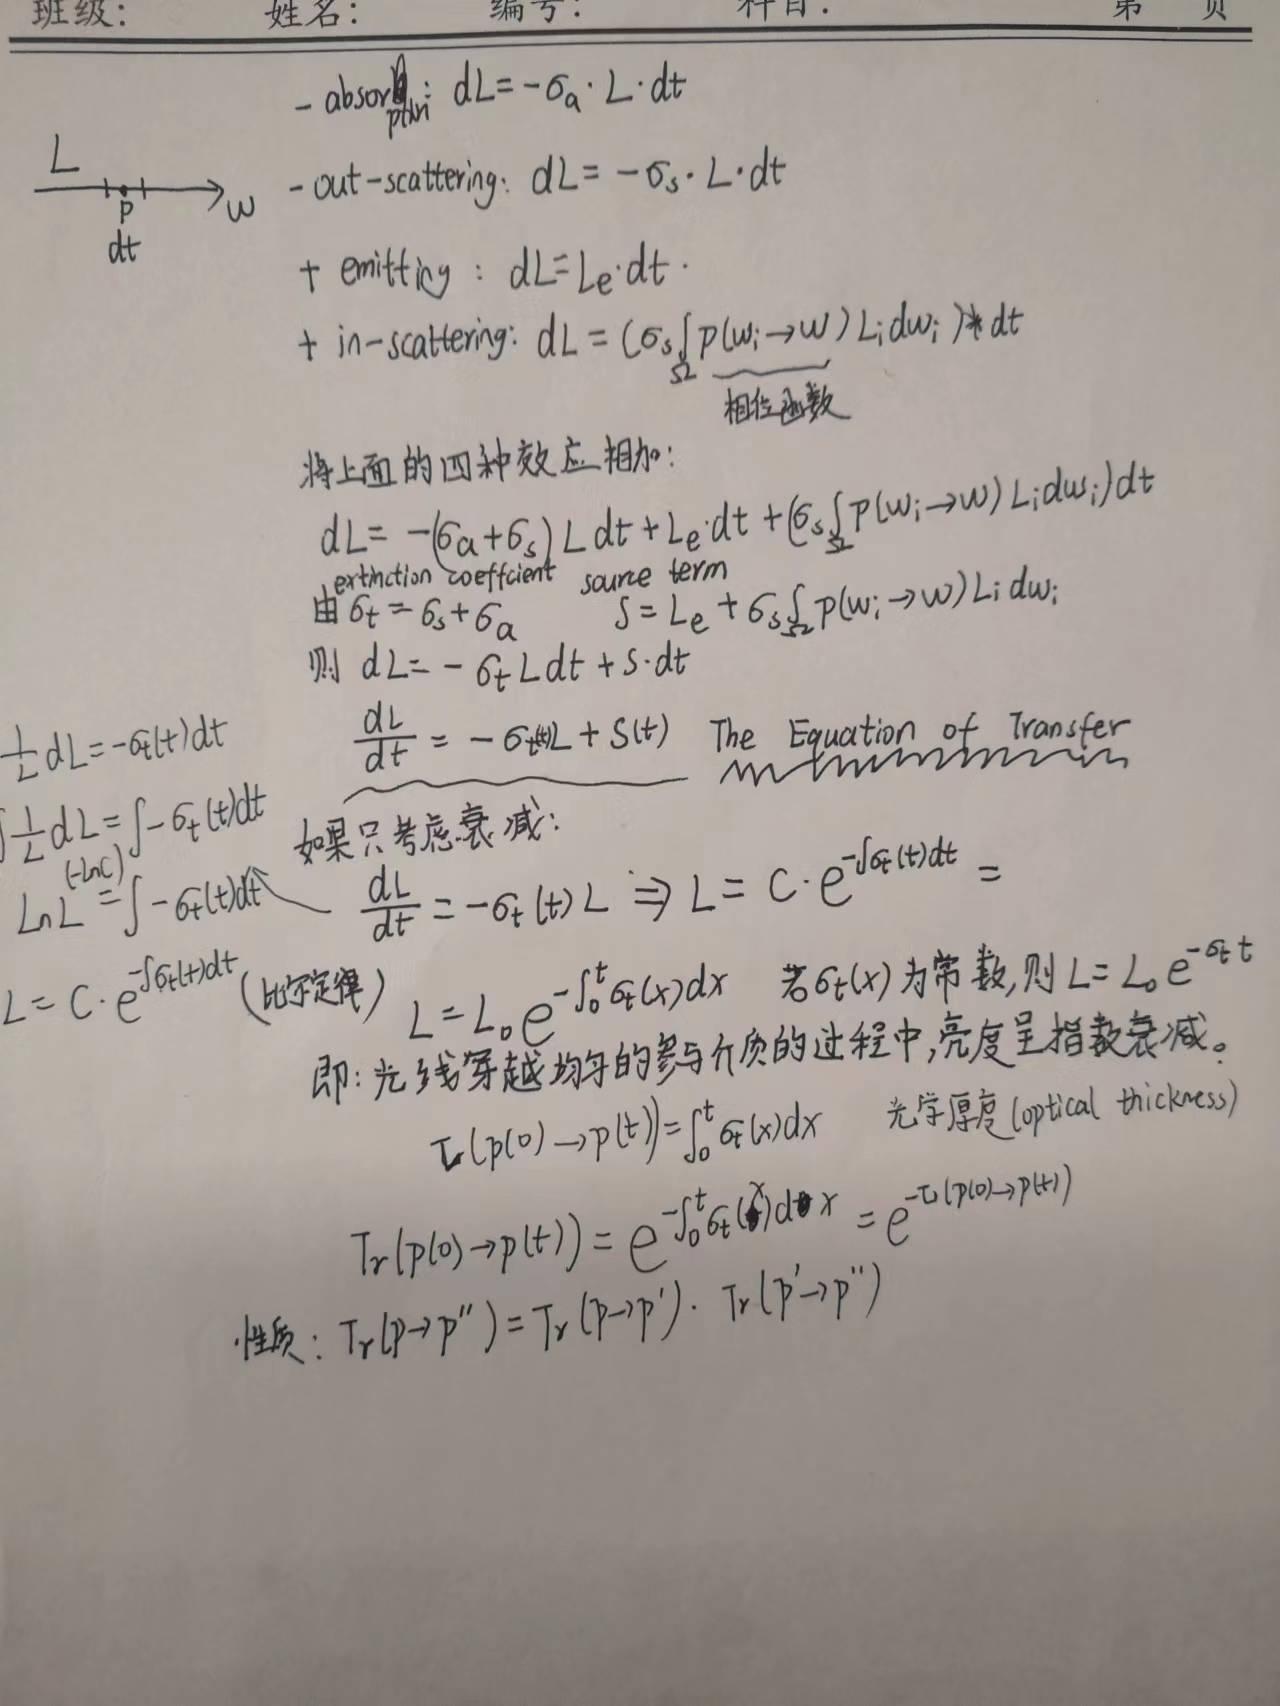 班级: 姓名: 编号: 科目: 第 页
- absorption: dL = -σa · L · dt
L
p
w
dt
- out-scattering: dL = -σs · L · dt
+ emitting : dL = Le · dt ·
+ in-scattering: dL = (σs∫Ω p(wi→w) Li dwi) * dt
相位函数
将上面的四种效应相加:
dL = -(σa+σs) L dt + Le·dt + (σs∫Ω p(wi→w) Li dwi) dt
extinction coeffcient source term
由 σt = σs + σa S = Le + σs∫Ω p(wi→w) Li dwi
则 dL = - σt L dt + S·dt
dL/dt = - σt(t)L + S(t) The Equation of Transfer
1/L dL = -σt(t)dt
∫1/L dL = ∫-σt(t)dt
(-lnC)
LnL = ∫-σt(t)dt
L = C·e^{-∫σt(t)dt} (比尔定律)
如果只考虑衰减:
dL/dt = -σt(t) L ⇒ L = C·e^{-∫σt(t)dt} =
L = L0 e^{-∫0^t σt(x)dx} 若σt(x)为常数,则 L = L0 e^{-σt t}
即: 光线穿越均匀的参与介质的过程中,亮度呈指数衰减。
τ(p(0)→p(t)) = ∫0^t σt(x)dx 光学厚度(optical thickness)
Tr(p(0)→p(t)) = e^{-∫0^t σt(x)dx} = e^{-τ(p(0)→p(t))}
·性质: Tr(p→p'') = Tr(p→p')· Tr(p'→p'')